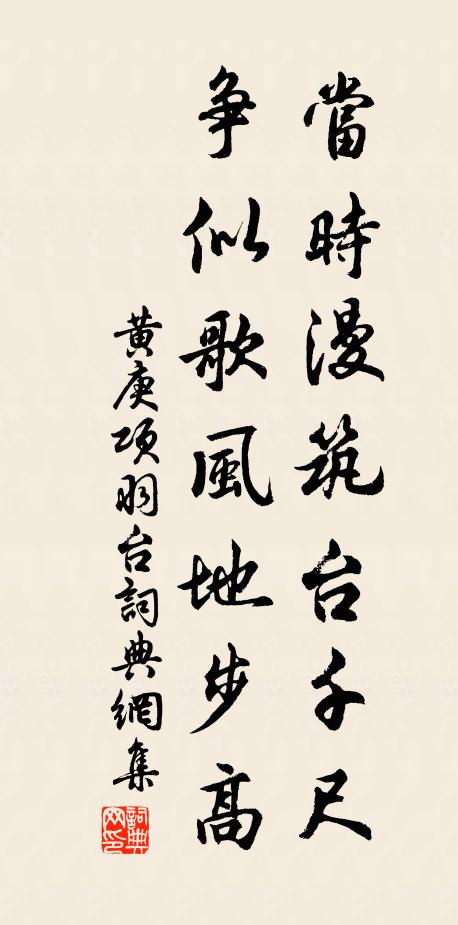 當時漫筑台千尺
争似歌風地步高
黄庚項羽台詞典網集
詞典
网印